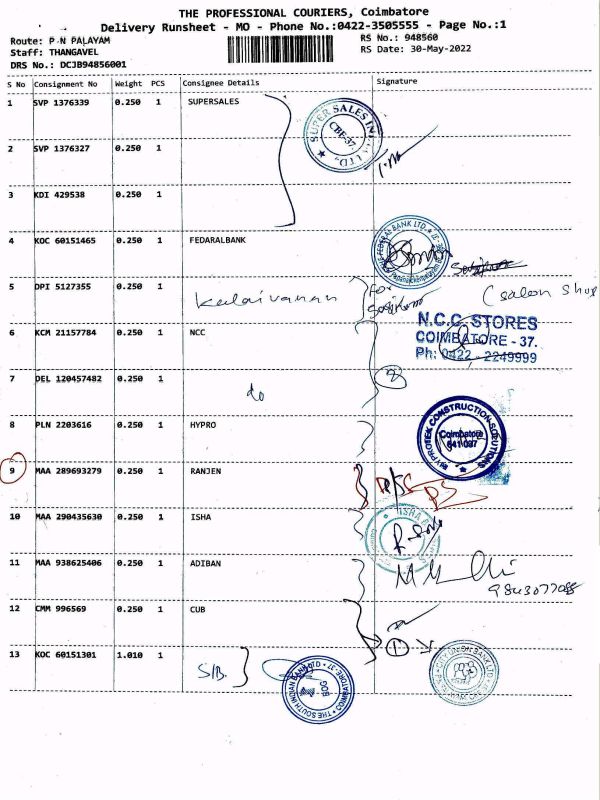 THE PROFESSIONAL COURIERS, Coimbatore
Delivery Runsheet - MO - Phone No.:0422-3505555 - Page No.:1
Route: P N PALAYAM
RS No.: 948560
Staff: THANGAVEL
RS Date: 30-May-2022
DRS No.: DCJB94856001
S No Consignment No Weight PCS Consignee Details Signature
1 SVP 1376339 0.250 1 SUPERSALES
SUPER SALES IN LTD.
CBE-37
2 SVP 1376327 0.250 1
3 KDI 429538 0.250 1
4 KOC 60151465 0.250 1 FEDARALBANK
FEDERAL BANK LTD.
5 DPI 5127355 0.250 1 Kalaivanan for (Salon Shop
6 KCM 21157784 0.250 1 NCC
N.C.C. STORES
COIMBATORE - 37.
Ph: 0422 - 2249999
7 DEL 120457482 0.250 1 do
8 PLN 2203616 0.250 1 HYPRO
HYPROTEK CONSTRUCTION SOLUTIONS
Coimbatore
641 037
9 MAA 289693279 0.250 1 RANJEN
10 MAA 290435630 0.250 1 ISHA
ISHA
11 MAA 938625406 0.250 1 ADIBAN
9843077088
12 CMM 996569 0.250 1 CUB
13 KOC 60151301 1.010 1 SIB.
CITY UNION BANK LTD
THE SOUTH INDIAN BANK LTD
COIMBATORE-37